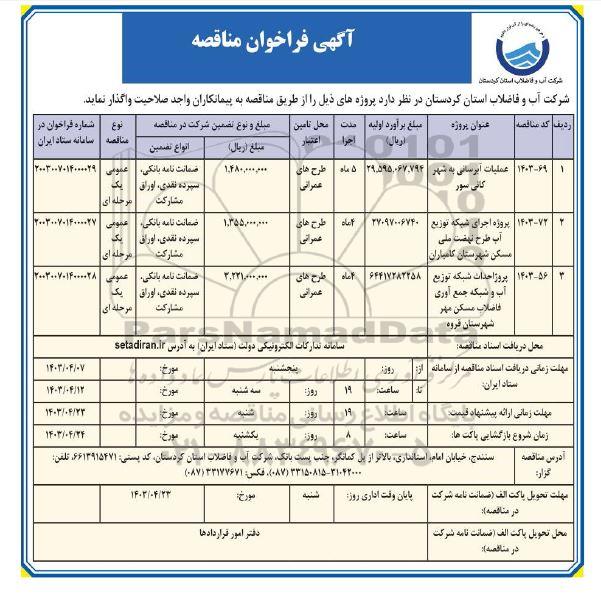 آگهی فراخوان مناقصه
شرکت آب و فاضلاب استان کردستان
شرکت آب و فاضلاب استان کردستان در نظر دارد پروژه های ذیل را از طریق مناقصه به پیمانکاران واجد صلاحیت واگذار نماید.
ردیف کد مناقصه عنوان پروژه مبلغ برآورد اولیه (ریال) مدت اجرا محل تامین اعتبار مبلغ و نوع تضمین شرکت در مناقصه نوع مناقصه شماره فراخوان در سامانه ستاد ایران
مبلغ (ریال) انواع تضمین
۱ ۱۴۰۳-۶۹ عملیات آبرسانی به شهر کانی سور ۲۹,۵۹۵,۰۶۷,۷۹۴ ۵ ماه طرح های عمرانی ۱,۴۸۰,۰۰۰,۰۰۰ ضمانت نامه بانکی، سپرده نقدی، اوراق مشارکت عمومی یک مرحله ای ۲۰۰۳۰۰۷۰۱۴۰۰۰۰۲۹
۲ ۱۴۰۳-۷۲ پروژه اجرای شبکه توزیع آب طرح نهضت ملی مسکن شهرستان کامیاران ۲۷۰۹۷۰۰۶۷۴۰ ۴ماه طرح های عمرانی ۱,۳۵۵,۰۰۰,۰۰۰ ضمانت نامه بانکی، سپرده نقدی، اوراق مشارکت عمومی یک مرحله ای ۲۰۰۳۰۰۷۰۱۴۰۰۰۰۲۷
۳ ۱۴۰۳-۵۶ پروژاحداث شبکه توزیع آب و شبکه جمع آوری فاضلاب مسکن مهر شهرستان قروه ۶۴۴۱۷۲۸۲۲۵۸ ۴ماه طرح های عمرانی ۳,۲۲۱,۰۰۰,۰۰۰ ضمانت نامه بانکی، سپرده نقدی، اوراق مشارکت عمومی یک مرحله ای ۲۰۰۳۰۰۷۰۱۴۰۰۰۰۲۸
محل دریافت اسناد مناقصه: سامانه تدارکات الکترونیکی دولت (ستاد ایران) به آدرس setadiran.ir
مهلت زمانی دریافت اسناد مناقصه از سامانه ستاد ایران: از: روز: پنجشنبه مورخ: ۱۴۰۳/۰۴/۰۷
تا: ساعت: ۱۹ روز: سه شنبه مورخ: ۱۴۰۳/۰۴/۱۲
مهلت زمانی ارائه پیشنهاد قیمت: ساعت: ۱۹ روز: شنبه مورخ: ۱۴۰۳/۰۴/۲۳
زمان شروع بازگشایی پاکت ها: ساعت: ۸ روز: یکشنبه مورخ: ۱۴۰۳/۰۴/۲۴
آدرس مناقصه گزار: سنندج، خیابان امام، استانداری، بالاتر از پل کمانگر، جنب پست بانک، شرکت آب و فاضلاب استان کردستان، کد پستی: ۶۶۱۳۹۱۵۴۷۱، تلفن: ۳۱۰۴۲۰۰۰-۳۳۱۵۰۸۱۵ (۰۸۷)، فکس: ۳۳۱۷۷۶۷۱ (۰۸۷)
مهلت تحویل پاکت الف (ضمانت نامه شرکت در مناقصه): پایان وقت اداری روز: شنبه مورخ: ۱۴۰۳/۰۴/۲۳
محل تحویل پاکت الف (ضمانت نامه شرکت در مناقصه): دفتر امور قراردادها
ParsNamadData
پایگاه اطلاع رسانی مناقصه و مزایده